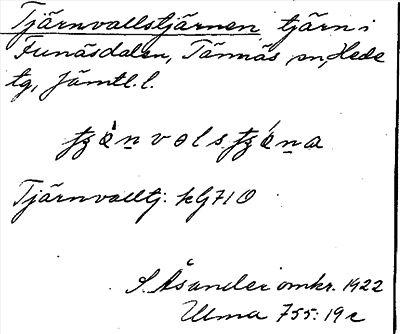 Tjärnvallstjärnen, tjärn i
Funäsdalen, Tännäs sn, Hede
tg, Jämtl. l.
Tjärnvalltj. kG71O
S. Åsander omkr. 1922
Ulma 755:19c